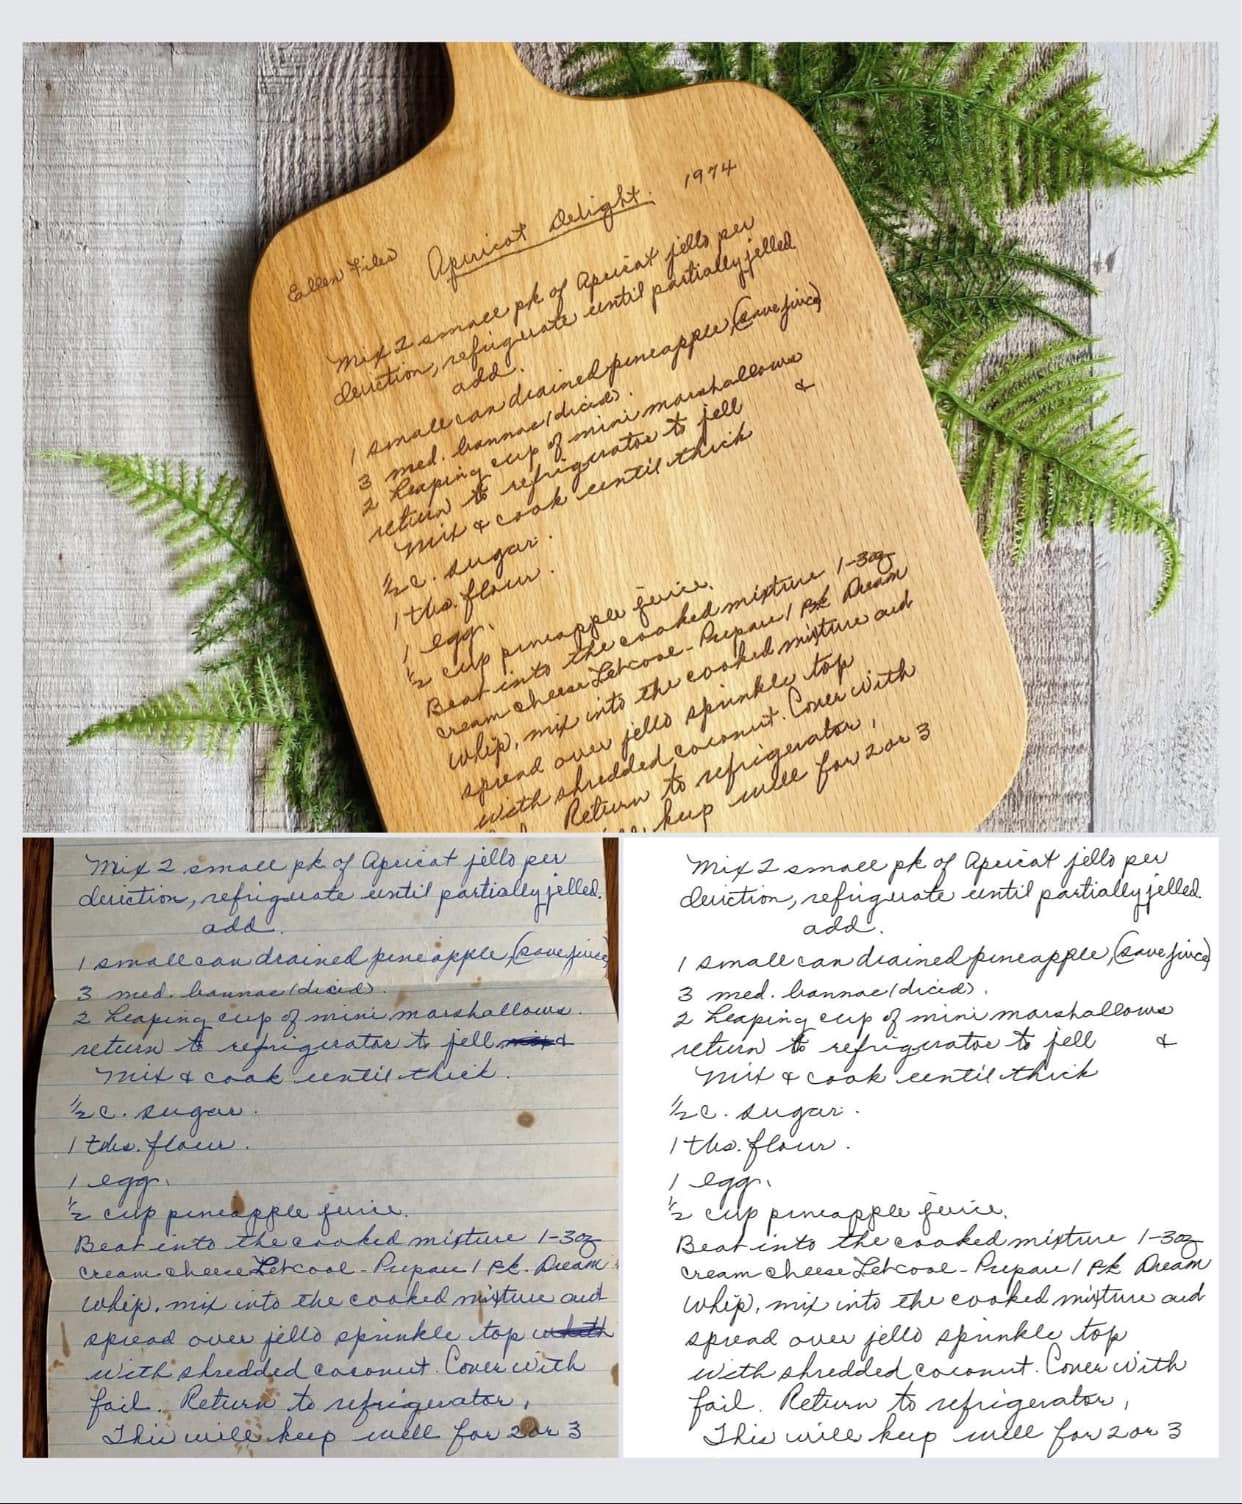 Ellen Files Apricot Delight. 1974
Mix 2 small pk of Apricot jello per
diriction, refriguate until partially jelled
add.
1 small can drained pineapple, (save juice)
3 med. bannae (diced).
2 heaping cup of mini marshallows
return to refrigirator to jell &
Mix & cook until thick
½ c. sugar.
1 tbs. flour.
1 egg.
½ cup pineapple juice.
Beat into the cooked mixture 1-3oz
cream cheese Let cool - Prepare 1 Pk Dream
whip, mix into the cooked mixture and
spread over jello sprinkle top
with shredded coconut. Cover with
Return to refrigerator,
keep well for 2 or 3
Mix 2 small pk of Apricot jello per
diriction, refriguate until partially jelled.
add.
1 small can drained pineapple, (save juice
3 med. bannae (diced).
2 heaping cup of mini marshallows.
return to refrigirator to jell &
Mix & cook until thick.
½ c. sugar.
1 tbs. flour.
1 egg.
½ cup pineapple juice.
Beat into the cooked mixture 1-3oz
cream cheese Let cool - Prepare 1 Pk. Dream
whip, mix into the cooked mixture and
spread over jello sprinkle top
with shredded coconut. Cover with
foil. Return to refrigerator,
This will keep well for 2 or 3
Mix 2 small pk of Apricot jello per
diriction, refriguate until partially jelled
add.
1 small can drained pineapple, (save juice)
3 med. bannae (diced).
2 heaping cup of mini marshallows
return to refrigirator to jell &
Mix & cook until thick
½ c. sugar.
1 tbs. flour.
1 egg.
½ cup pineapple juice.
Beat into the cooked mixture 1-3oz
cream cheese Let cool - Prepare 1 Pk Dream
whip, mix into the cooked mixture and
spread over jello sprinkle top
with shredded coconut. Cover with
foil. Return to refrigerator,
This will keep well for 2 or 3